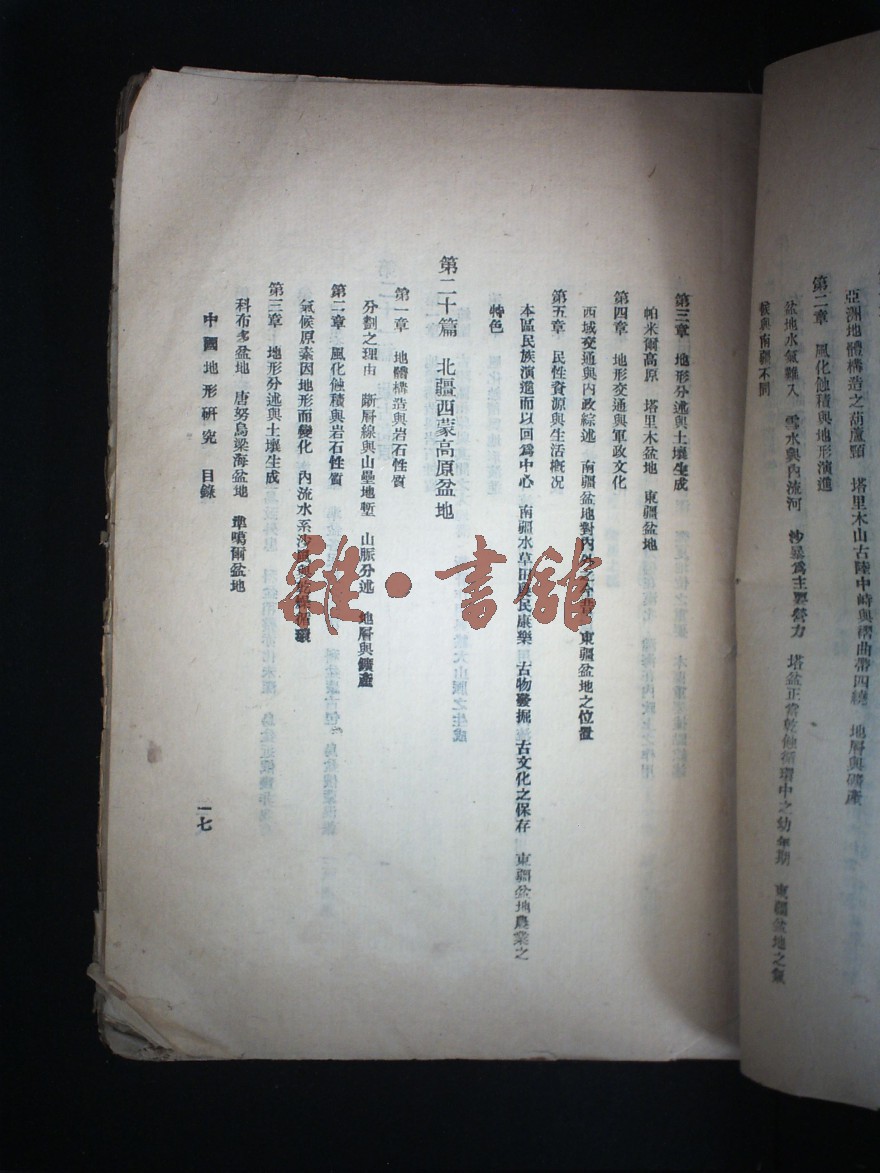 亞洲地體構造之葫蘆頸　塔里木山古陸中峙與褶曲帶四繞　地層與礦產
第二章　風化蝕積與地形演進
盆地水氣難入　雪水與內流河　沙暴爲主要營力　塔盆正當乾蝕循環中之幼年期　東疆盆地之氣
候與南疆不同
第三章　地形分述與土壤生成
帕米爾高原　塔里木盆地　東疆盆地
第四章　地形交通與軍政文化
西域交通與內政綜述　南疆盆地對內外　東疆盆地之位置
第五章　民性資源與生活概況
本區民族演進而以回爲中心　南疆水草田　民康樂　古物發掘　古文化之保存　東疆盆地農業之
特色
第二十篇　北疆西蒙高原盆地
第一章　地體構造與岩石性質
分劃之理由　斷層線與山壘地塹　山脈分述　地層與鑛產
第二章　風化蝕積與岩石性質
氣候原素因地形而變化　內流水系沙　循環
第三章　地形分述與土壤生成
科布多盆地　唐努烏梁海盆地　準噶爾盆地
中國地形研究　目錄
一七
雜·書館